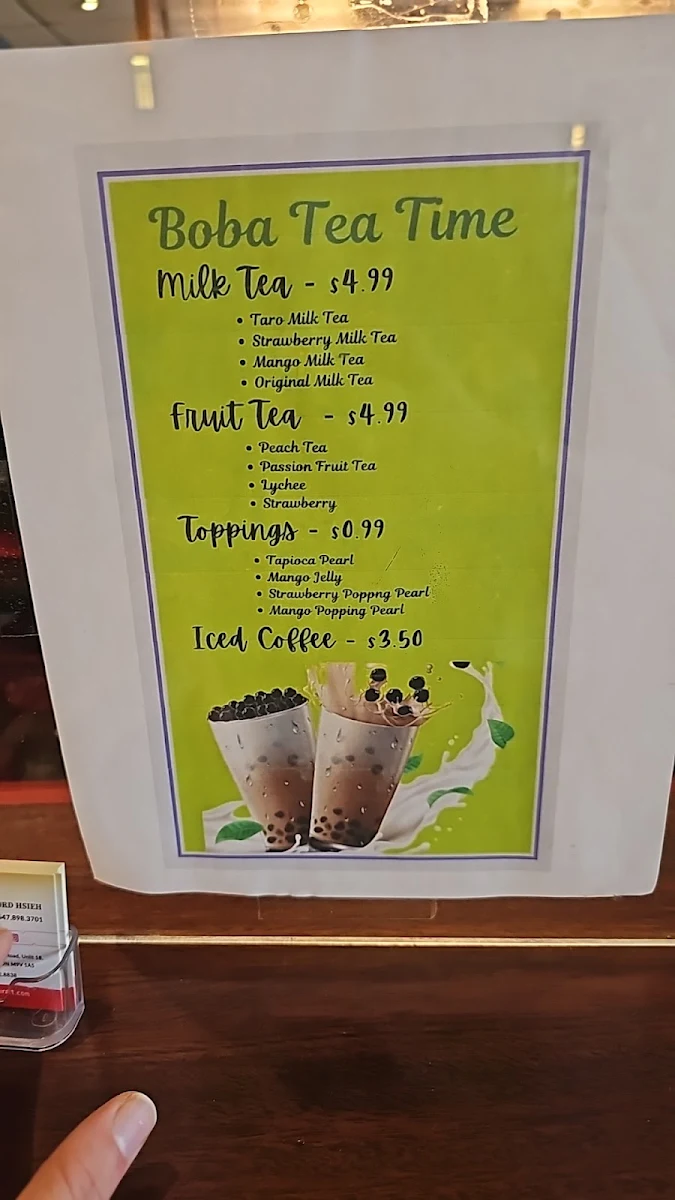 Boba Tea Time
Milk Tea - $4.99
• Taro Milk Tea
• Strawberry Milk Tea
• Mango Milk Tea
• Original Milk Tea
Fruit Tea - $4.99
• Peach Tea
• Passion Fruit Tea
• Lychee
• Strawberry
Toppings - $0.99
• Tapioca Pearl
• Mango Jelly
• Strawberry Poppng Pearl
• Mango Popping Pearl
Iced Coffee - $3.50
HSIEH
647.898.3701
Road, Unit 18,